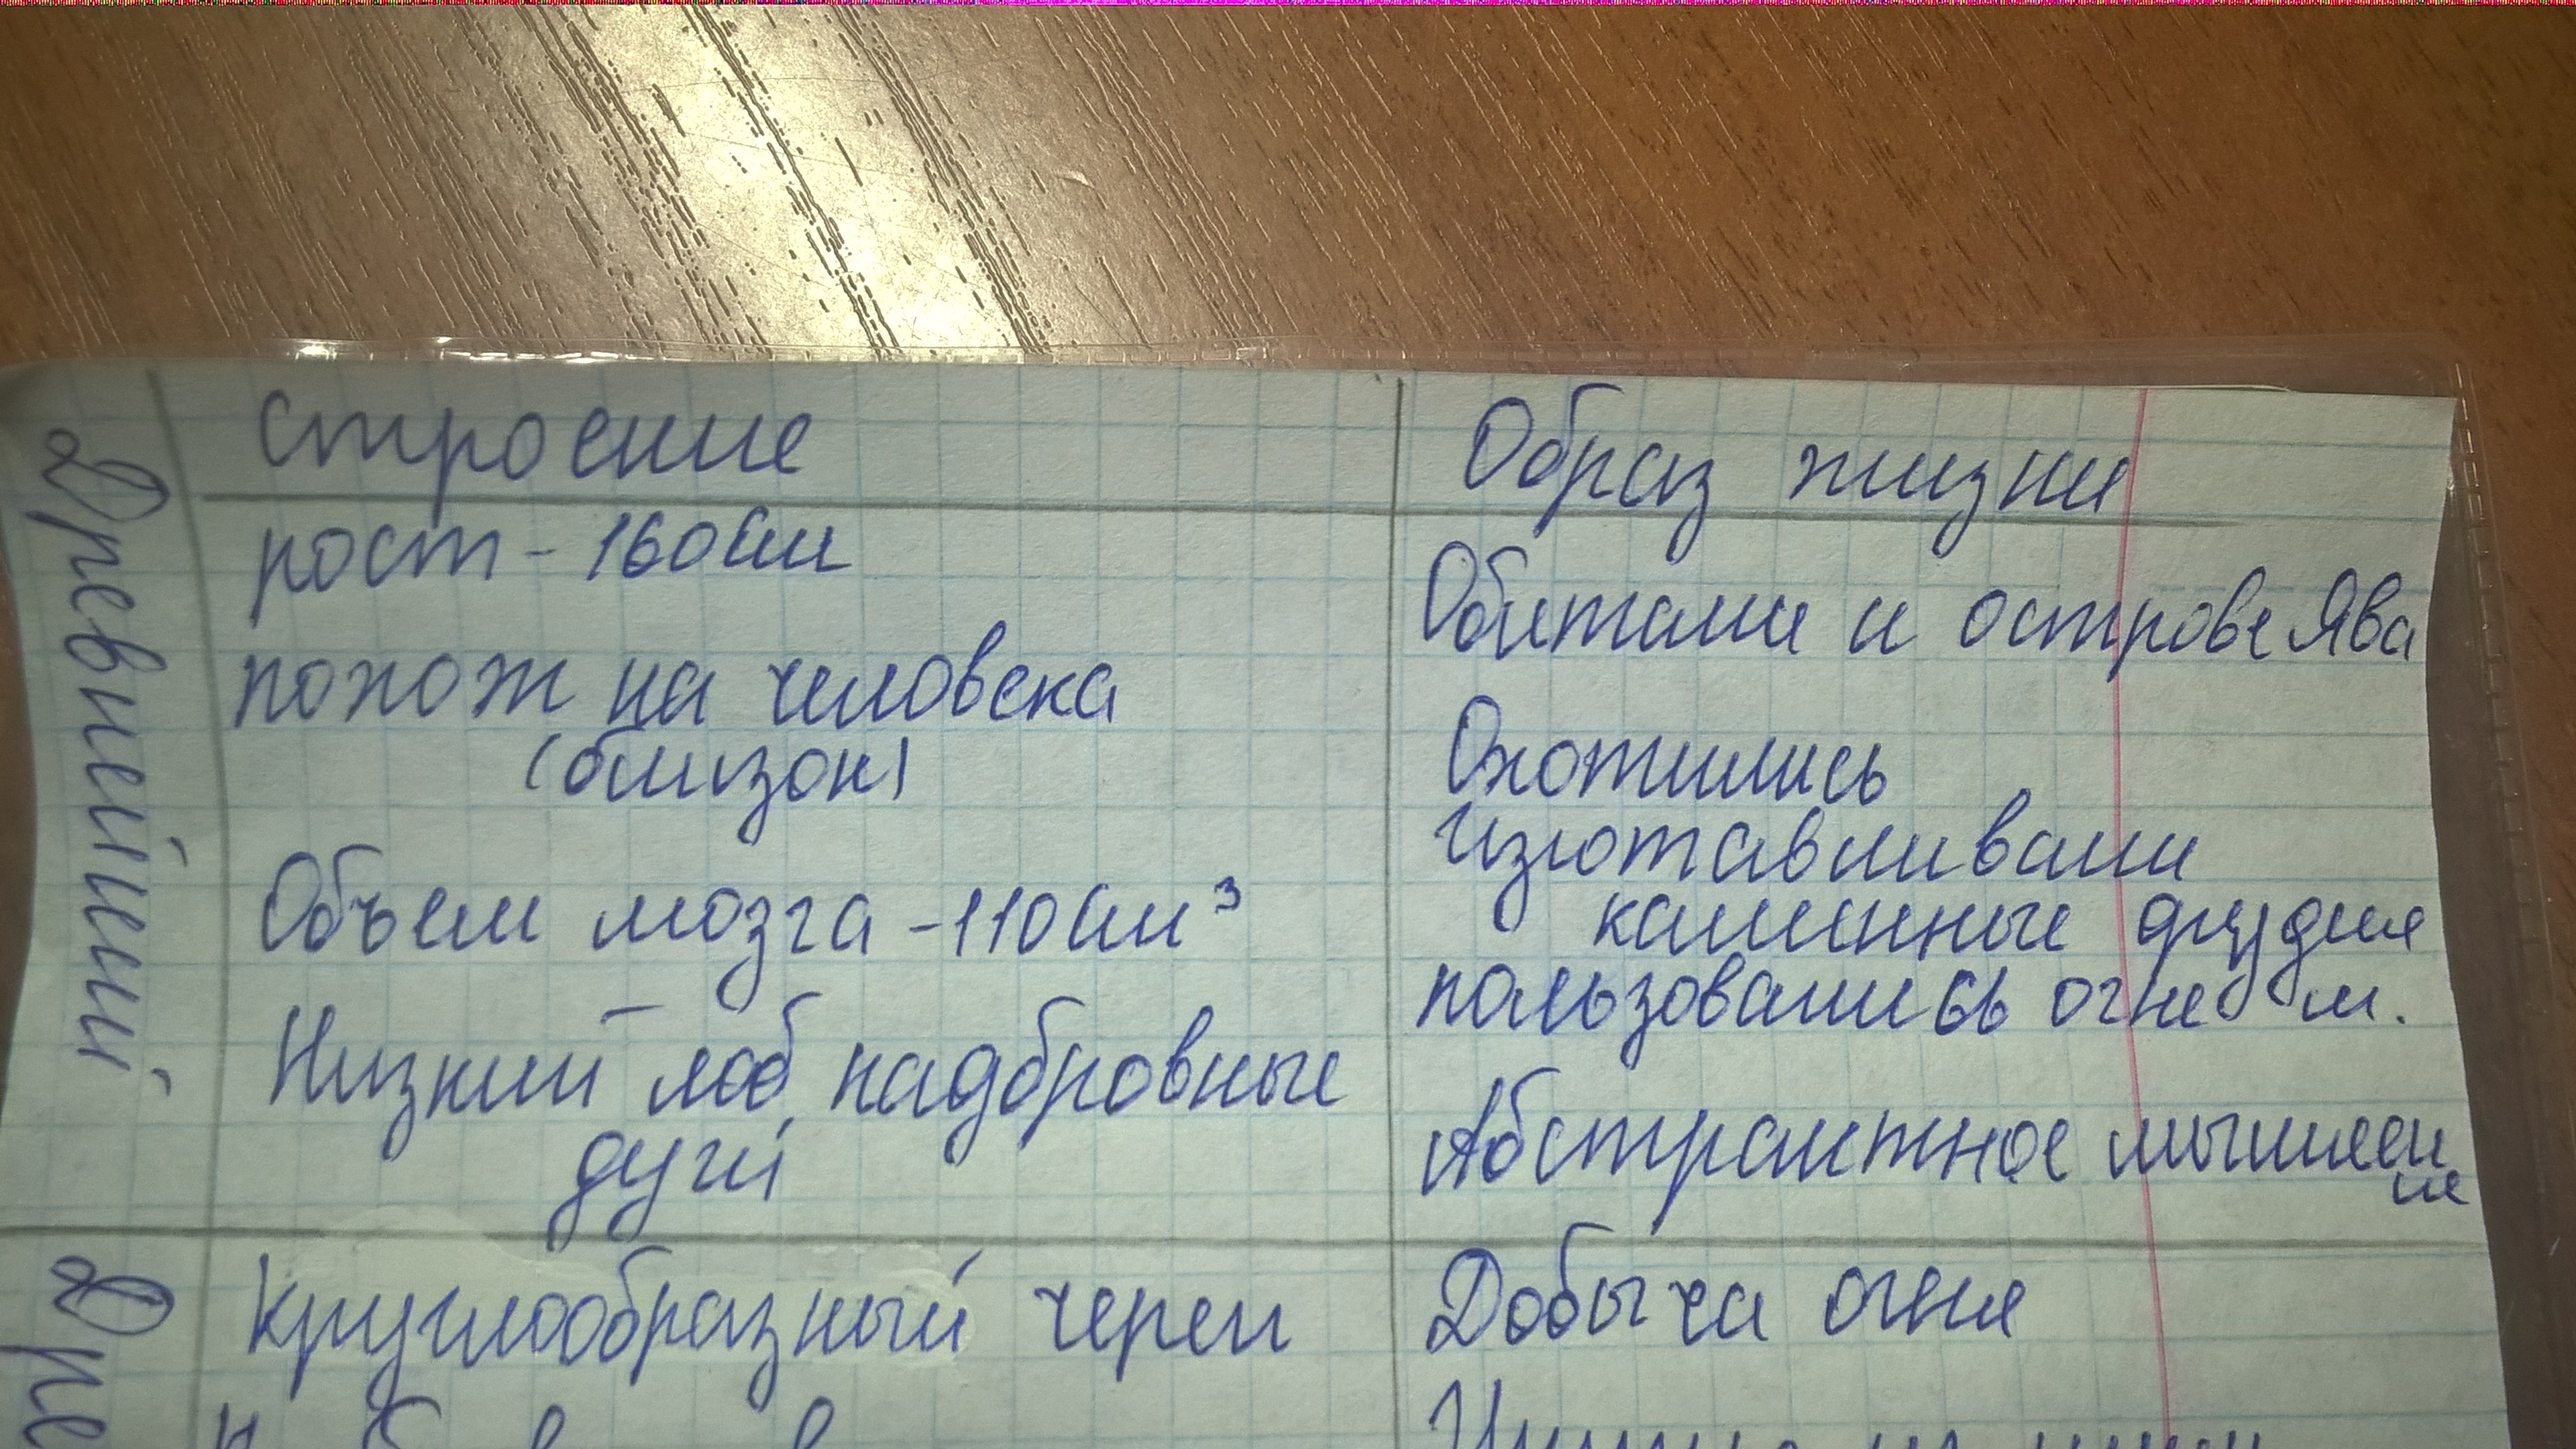 Древнейший
строение
рост - 160см
похож на человека
(близок)
Объем мозга - 110см³
Низкий лоб, надбровные
дуги
Образ жизни
Обитали и острове Ява
Охотились
Изготавливали
каменные орудия
пользовались огнем.
Абстрактное мышлен
ие
Дре
Круглообразный череп
Добыча огня